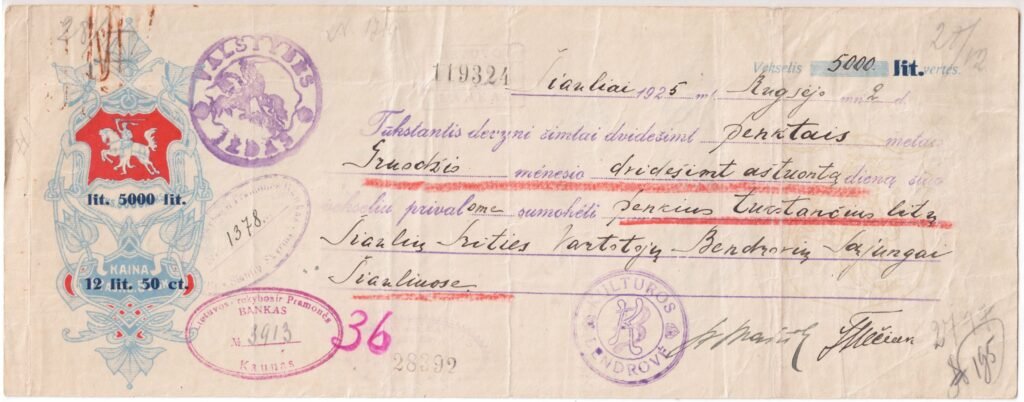 28/12
VALSTYBĖS
ŽENKLAS
119324
Vekselis 5000 lit. vertės.
Šiauliai 1925 m. Rugsėjo mėn. 2 d.
Tūkstantis devyni šimtai dvidešimt penktais metais
Gruodžio mėnesio dvidešimt aštuontą dieną šiuo
vekseliu privalome sumokėti penkius tukstančius litų
Šiaulių Srities Vartotojų Bendrovių Sąjungai
Šiauliuose
lit. 5000 lit.
KAINA
12 lit. 50 ct.
1378.
Lietuvos Prekybos ir Pramonės
BANKAS
№ 3913
Kaunas
36
28392
KULTŪROS
BENDROVĖ
KB
195